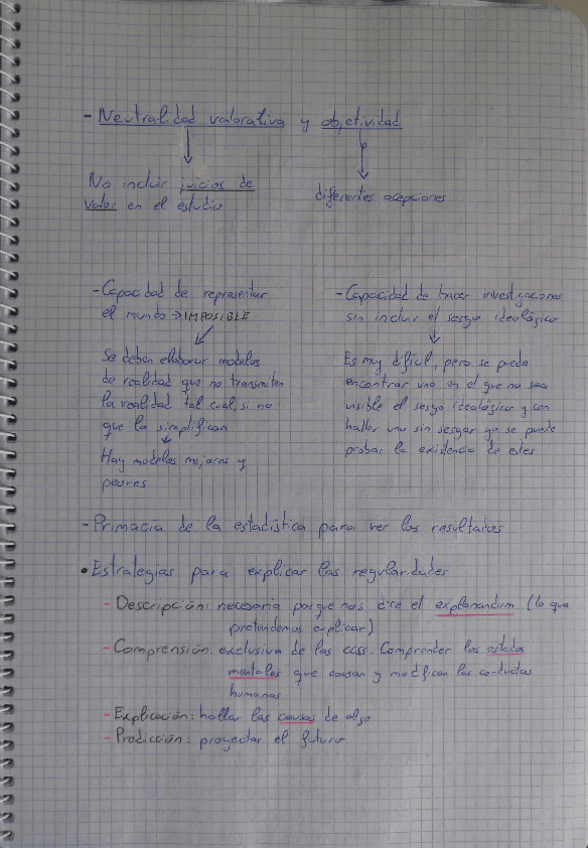 - Neutralidad valorativa y objetividad
No incluir juicios de
valor en el estudio
diferentes acepciones
- Capacidad de representar
el mundo → IMPOSIBLE
Se deben elaborar modelos
de realidad que no transmiten
la realidad tal cual, si no
que la simplifican
Hay modelos mejores y
peores
- Capacidad de hacer investigaciones
sin incluir el sesgo ideológico
Es muy difícil, pero se puede
encontrar uno en el que no sea
visible el sesgo ideológico y con
hallar uno sin sesgar ya se puede
probar la existencia de estos
- Primacía de la estadística para ver los resultados
• Estrategias para explicar las regularidades
- Descripción: necesaria porque nos dice el explanandum (lo que
pretendemos explicar)
- Comprensión: exclusiva de las ccss. Comprender los estados
mentales que causan y modifican las conductas
humanas
- Explicación: hallar las causas de algo
- Predicción: proyectar el futuro